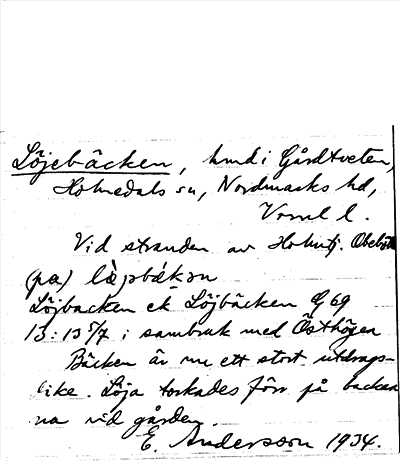 Löjebäcken, hmd i Gårdtveten,
Holmedals sn, Nordmarks hd,
Vrml l.
Vid stranden av Holmtj. Obebòtt
(pa) lø̀pbák̯ɔn
Löjbacken ek Löjbäcken G 69
13:13 5/7 i sambruk med Östhögen
Bäcken är nu ett stort utdrags-
dike. Löja torkades förr på backen
na vid gården.
E. Andersson 1934.